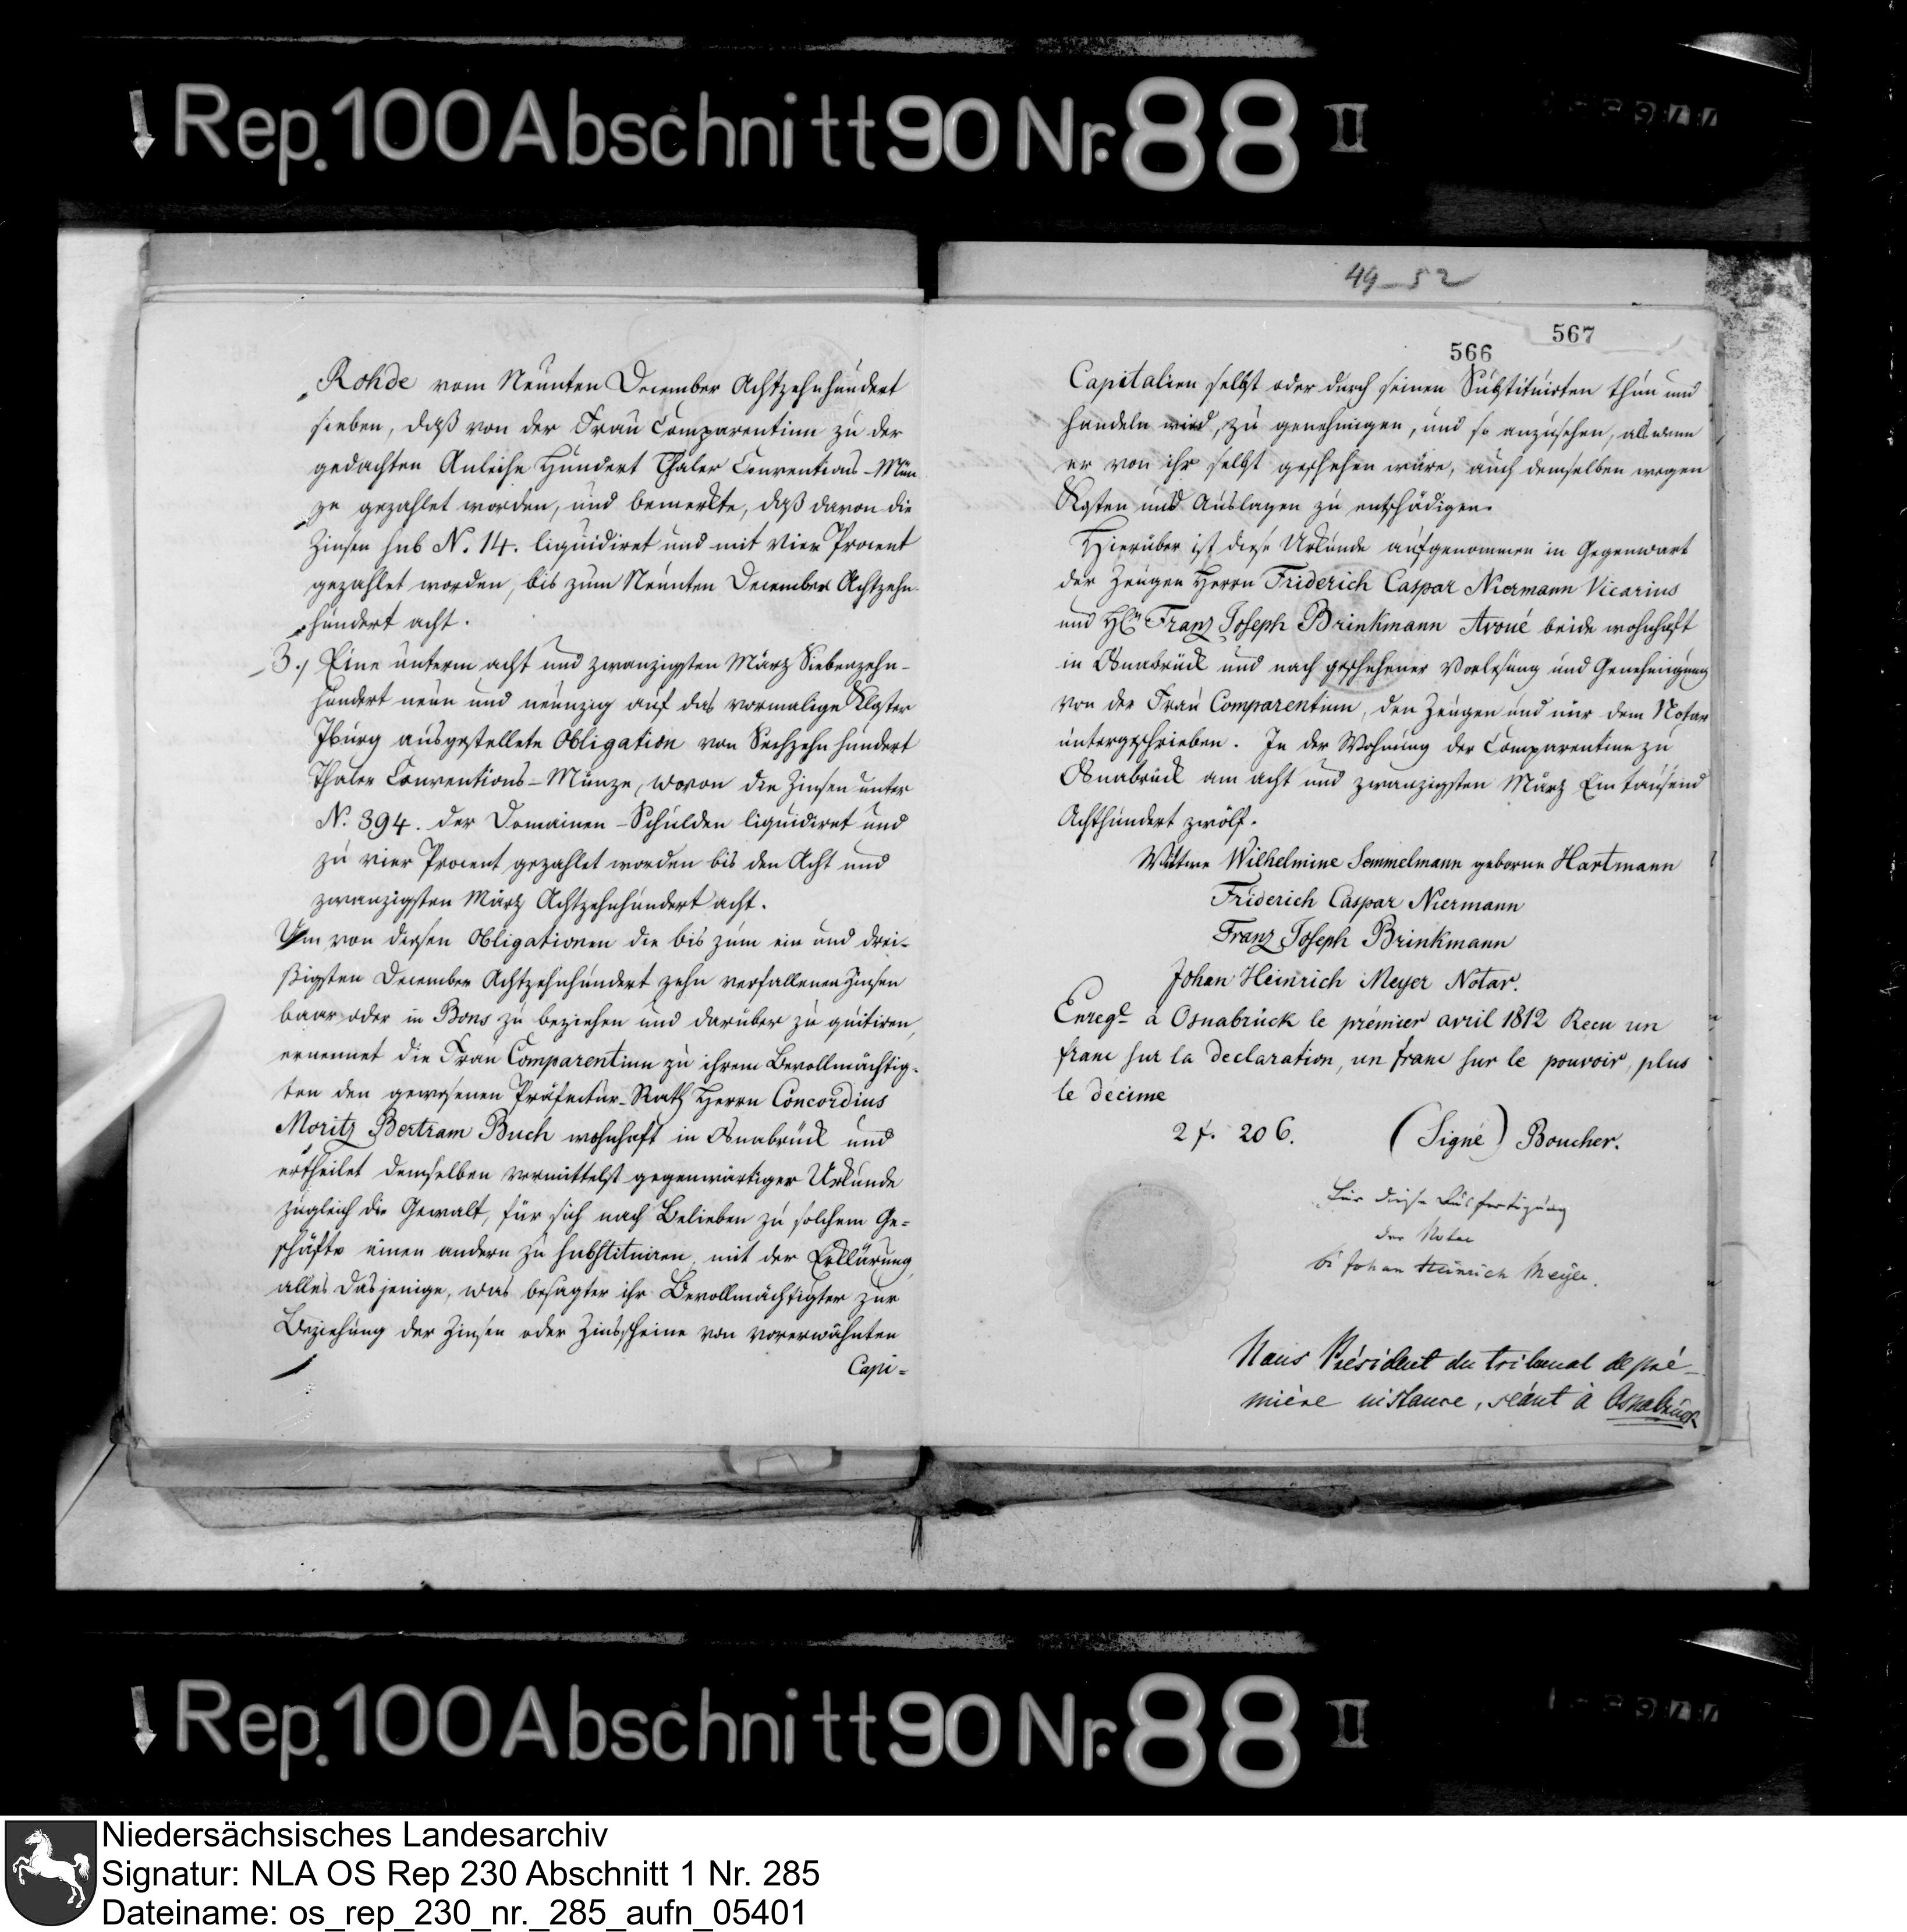 Rep. 100 Abschnitt 90 Nr. 88 II
49–52
567
566
Rohde vom Neunten December Achtzehnhundert
sieben, daß von der Frau Comparentinn zu der
gedachten Anleihe Hundert Thaler Conventions-Mün
ze gezahlet worden, und bemerkte, daß davon die
Zinsen sub N. 14. liquidiret und mit Vier Procent
gezahlet worden, bis zum Neunten December Achtzehn-
hundert acht.
3.) Eine unterm acht und zwanzigsten März Siebenzehn-
hundert neun und neunzig auf das vormalige Kloster
Iburg ausgestellete Obligation von Sechzehn hundert
Thaler Conventions-Münze, wovon die Zinsen unter
N. 394. der Domainen-Schulden liquidiret und
zu vier Procent gezahlet worden bis den Acht und
zwanzigsten März Achtzehnhundert acht.
Um von diesen Obligationen die bis zum ein und drei-
ßigsten December Achtzehnhundert zehn verfallenen Zinsen
baar oder in Bons zu beziehen und darüber zu quitiren,
ernennet die Frau Comparentinn zu ihrem Bevollmächtig-
ten den gewesenen Präfectur-Rath Herrn Concordius
Moritz Bertram Buch wohnhaft in Osnabrück und
ertheilet demselben vermittelst gegenwärtiger Urkunde
zugleich die Gewalt, für sich nach Belieben zu solchem Ge=
schäfte einen andern zu substituiren, mit der Erklärung,
alles dasjenige, was besagter ihr Bevollmächtigter zur
Beziehung der Zinsen oder Zinsscheine von vorerwähnten
Capi=
Capitalien selbst oder durch seinen Substituirten thun und
handeln wird, zu genehmigen, und so anzusehen, als wenn
er von ihr selbst geschehen wäre, auch demselben wegen
Kosten und Auslagen zu entschädigen.
Hierüber ist diese Urkunde aufgenommen in Gegenwart
der Zeugen Herrn Friderich Caspar Niermann Vicarius
und H. Franz Joseph Brinkmann Avoué beide wohnhaft
in Osnabrück und nach geschehener Vorlesung und Genehmigung
von der Frau Comparentinn, den Zeugen und mir dem Notar
unterschrieben. In der Wohnung der Comparentinn zu
Osnabrück am acht und zwanzigsten März Ein tausend
Achthundert zwölf.
Wittwe Wilhelmine Semmelmann geborne Hartmann
Friderich Caspar Niermann
Franz Joseph Brinkmann
Johan Heinrich Meyer Notar.
Enregé à Osnabrück le prémier avril 1812 Recu un
franc sur la declaration, un franc sur le pouvoir, plus
le décime
2 f. 20 C. (Signé) Boucher.
Für diese Ausfertigung
der Notar
Johan Heinrich Meyer.
Nous Président du tribunal de pré-
mière instance, séant à Osnabrück
Rep. 100 Abschnitt 90 Nr. 88 II
Niedersächsisches Landesarchiv
Signatur: NLA OS Rep 230 Abschnitt 1 Nr. 285
Dateiname: os_rep_230_nr._285_aufn_05401